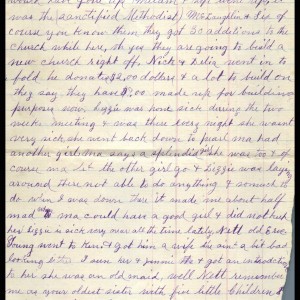 was the sanctified Methodist) McLaughlin & Lep of
course you know them they got 30 additions to the
church while here, oh yes they are going to build a
new church right off. Nick & Delia went in to
fold he donates $2,00 dollars & a lot to build on
they say they have $ .00 made up for building
purposes now. Lizzie was home sick during the two
weeks meeting & was there every night she wasnt
very sick she went back down to pearl ma had
another girl (ma says a splendid) she was too & of
course ma let the other girl go & Lizzie was lays
around there not able to do anything & so much to
do when I was down there it made me about half
mad ma could have a good girl & did
her Lizzie is sick very near all the time lately. Nett old
Young went to Ken & got him a wife she ain't a bit bad
looking I seen her & Jennie & got an introduction
to her she was an old maid, well Nett remember
me as your oldest sister with five little Children &